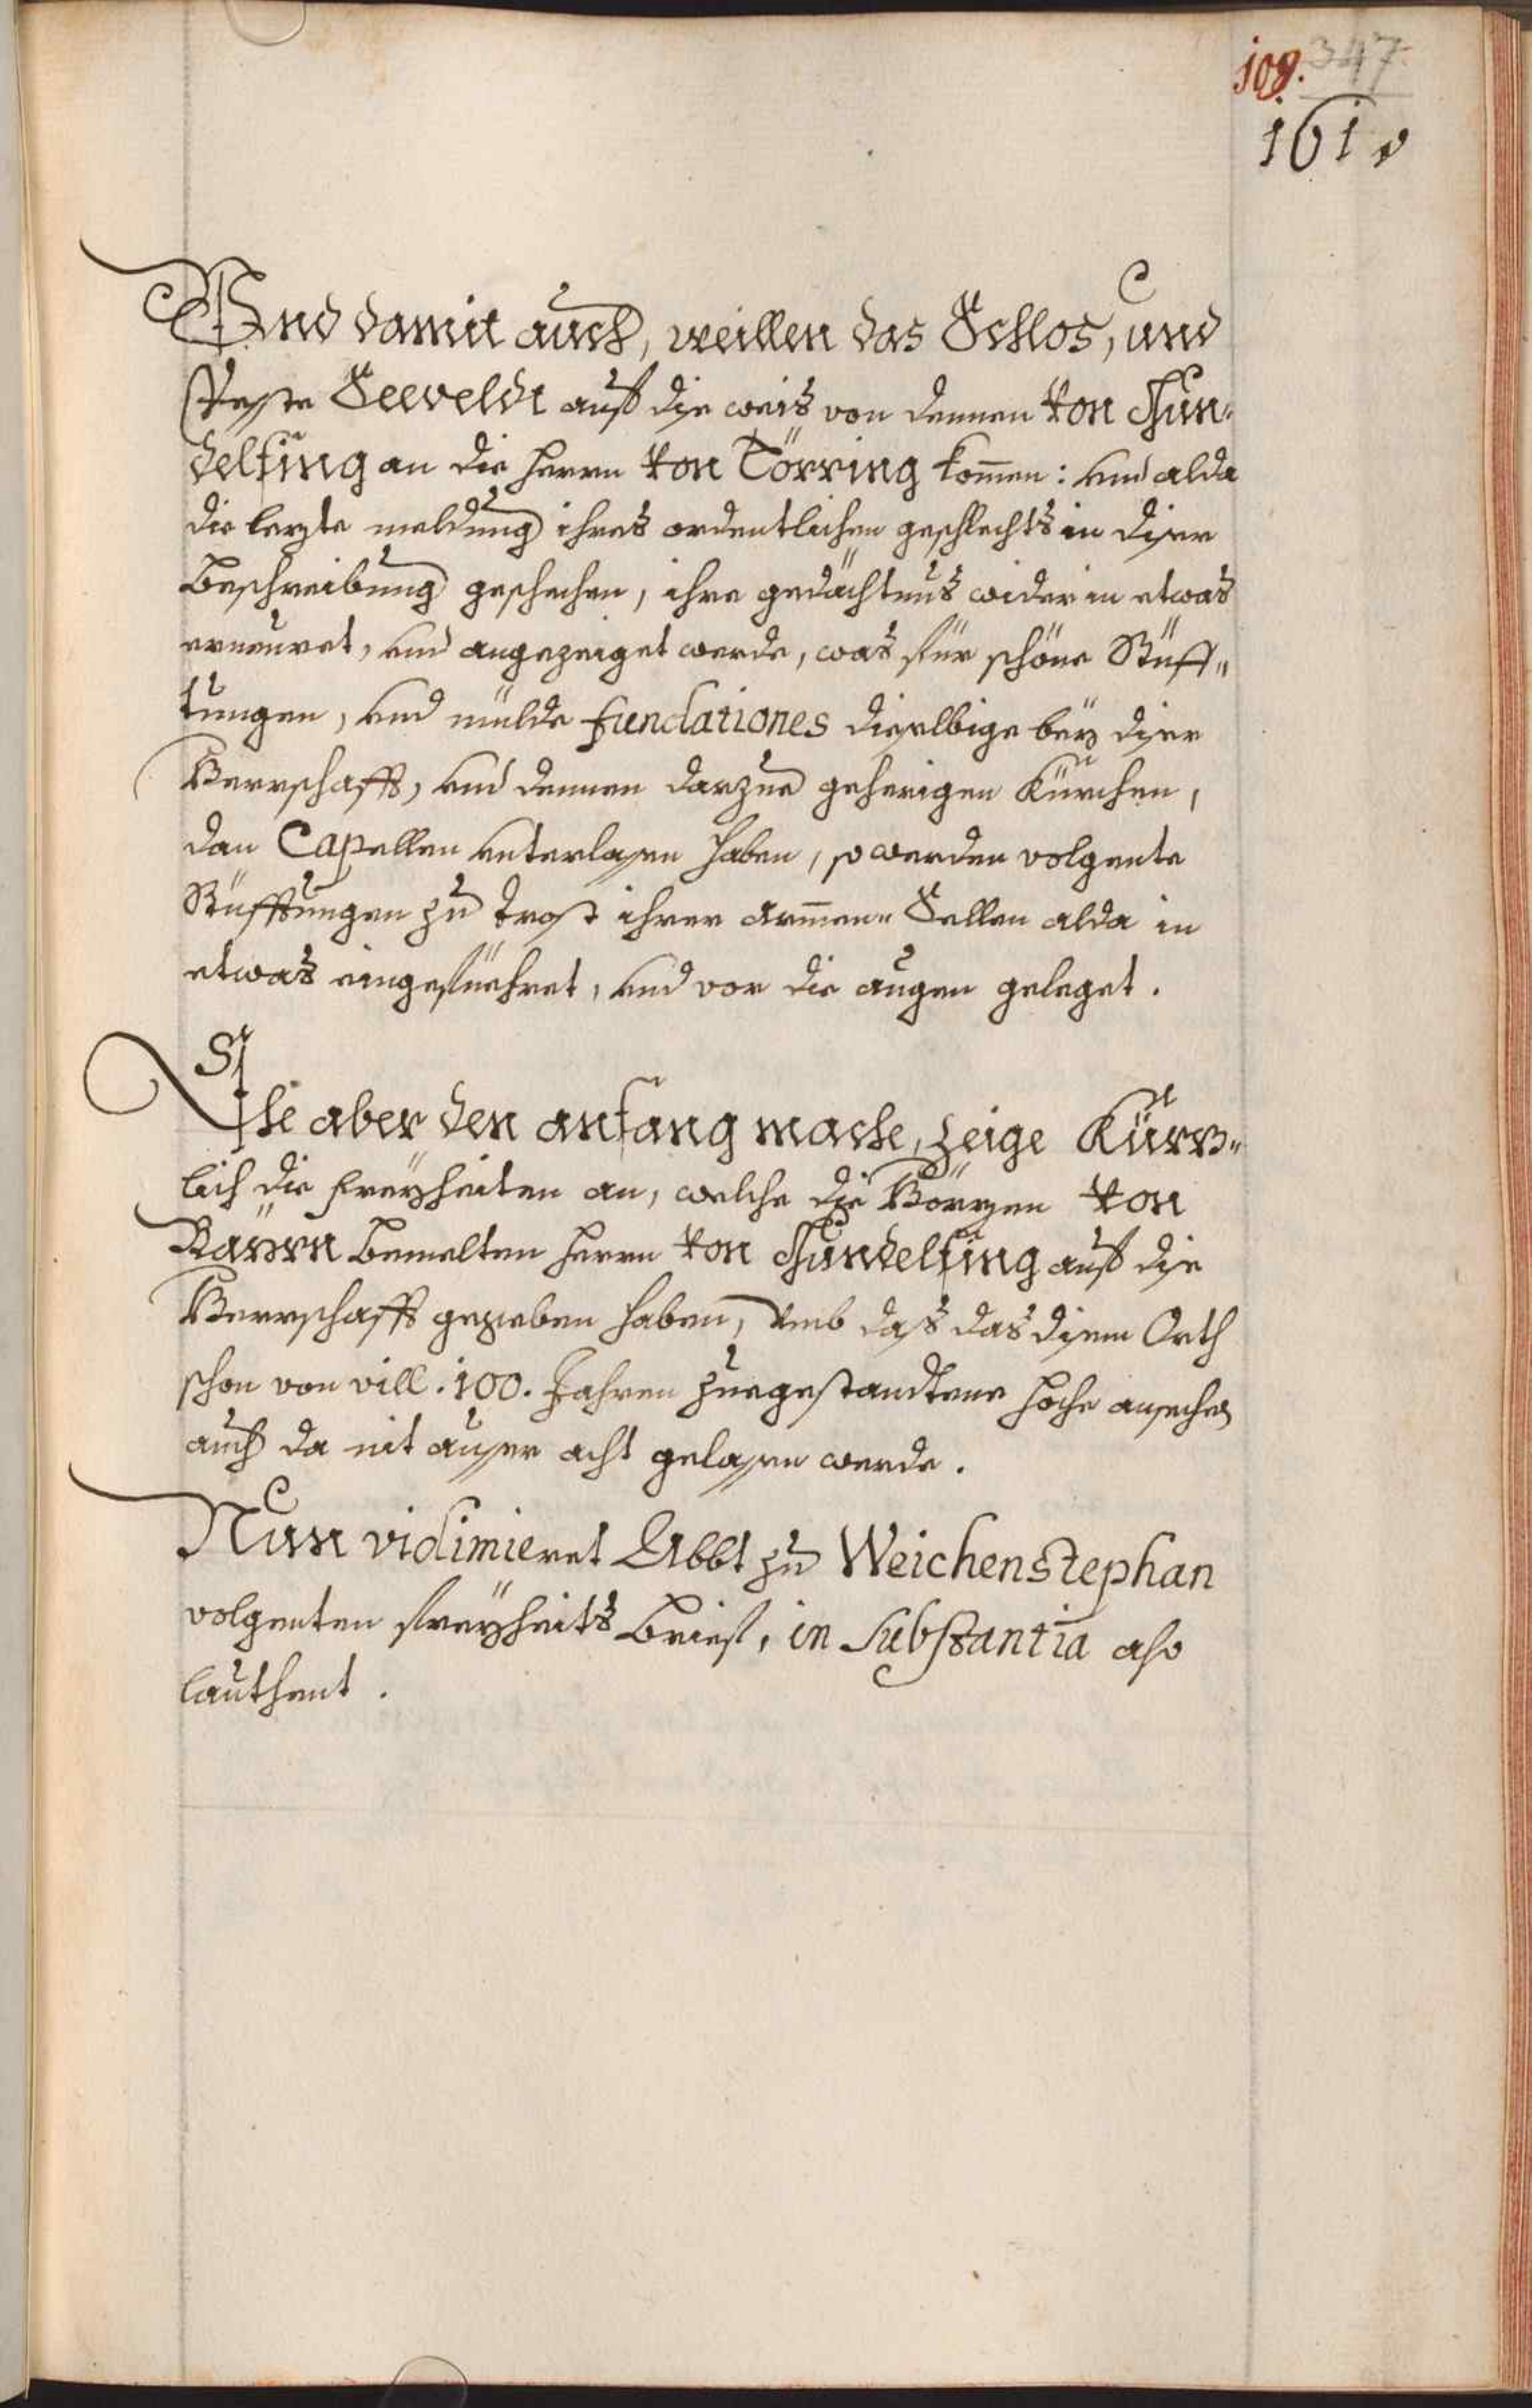 109. 347.
161
Und damit auch, weillen das Schlos, und
Veste Seeveldt auf dise weis von dennen von Gun-
delfing an die Herrn von Törring kommen: und alda
die lezte meldung ihres ordentlichen geschlechts in diser
Beschreibung geschechen, ihre gedächtnus wider in etwas
erneuret, und angezeiget werde, was für schöne Stüff-
tungen, und mülde fundationes dieselbige bey diser
Herrschafft, und dennen darzue geherigen Kürchen,
dan Capellen unterlasen haben, so werden volgente
Stüfftungen zu trost ihrer armmen Sellen alda in
etwas eingefüehret, und vor die augen geleget.
Ehe aber den anfang mache, zeige Kürz-
lich die freyheiten an, welche die Hörzen von
Bayrn bemelten Herrn von Gundelfing auf dise
Herrschafft gegeben haben, umb das das disem Orth
schon von vill .100. Jahren zuegestandtene hoche ansechen
auch da nit auser acht gelasen werde.
Nun vidimieret Abbt zu Weichenstephan
volgenten freyheits Brief, in substantia also
lauthent.